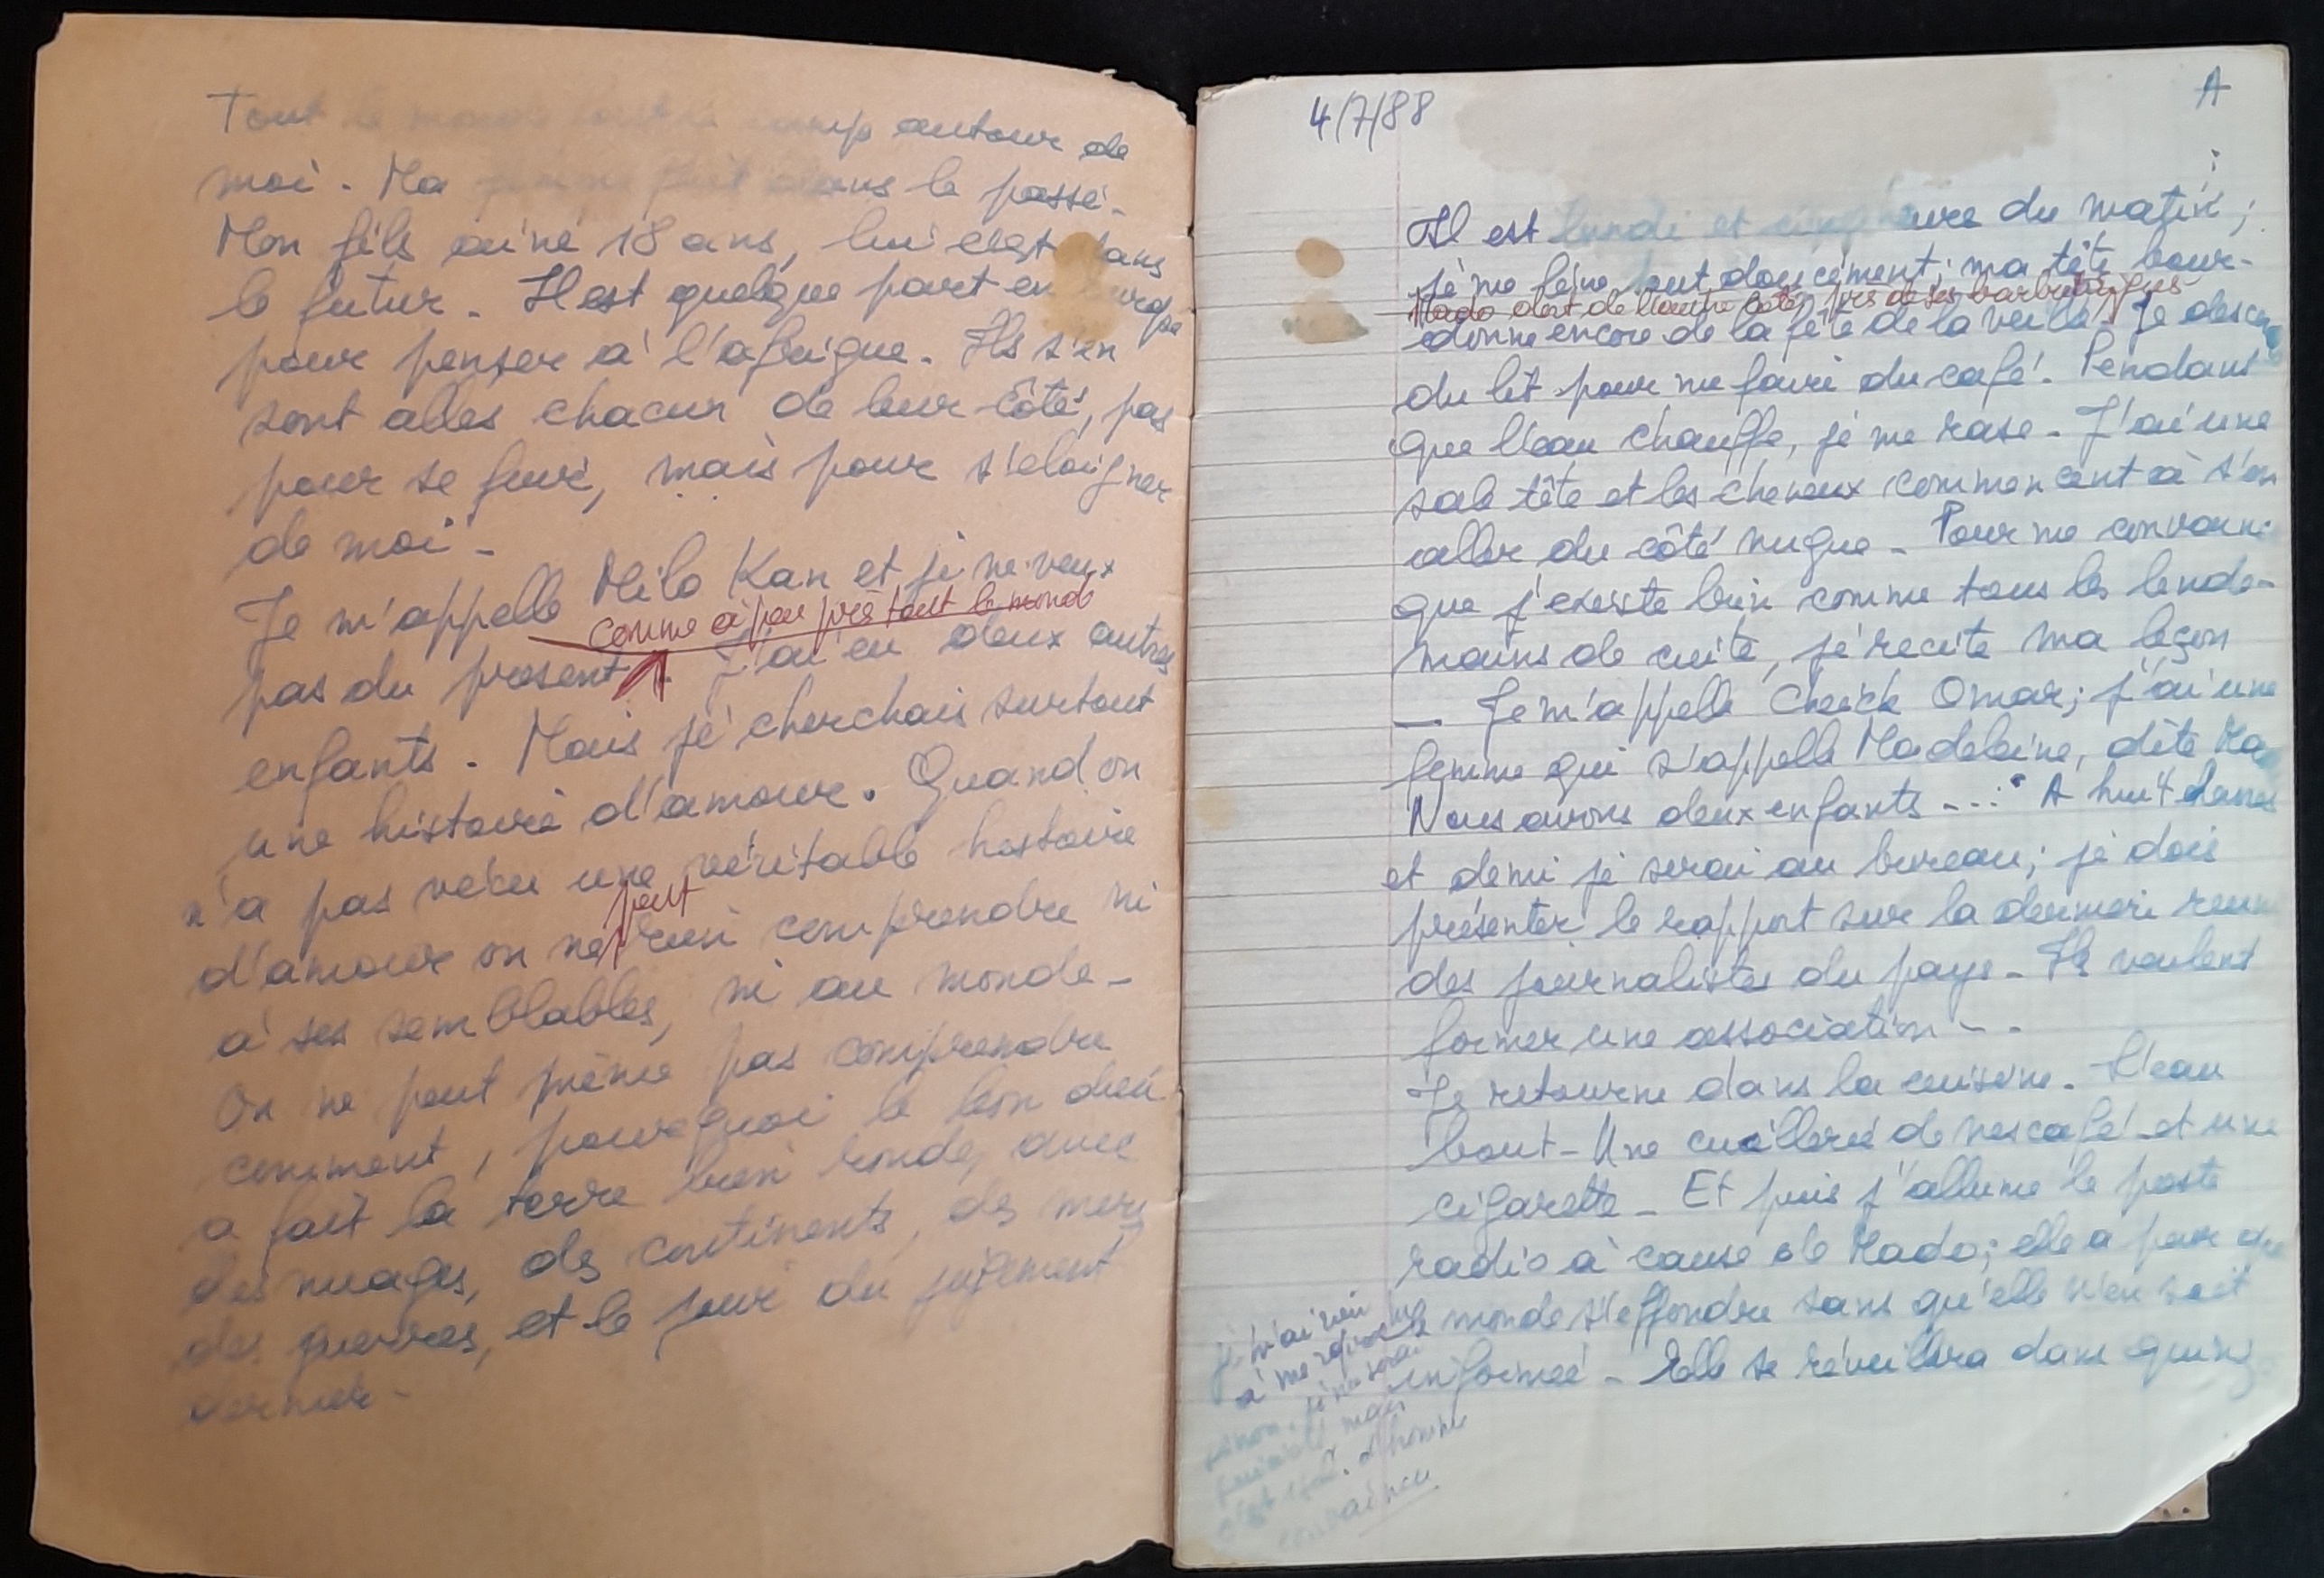 Tout le monde fout le camp autour de
moi. Ma femme fuit dans le passé.
Mon fils ainé 18 ans, lui c'est dans
le futur. Il est quelque part en Europe
pour penser à l'afrique. Ils s'en
sont allés chacun de leur côté, pas
pour se fuir, mais pour s'eloigner
de moi.
Je m'appelle Milo Kan et je ne veux
comme à peu près tout le monde
pas du présent. J'ai eu deux autres
enfants. Mais je cherchais surtout
une histoire d'amour. Quand on
n'a pas vécu une véritable histoire
peut
d'amour on ne rien comprendre ni
à ses semblables, ni au monde.
On ne peut même pas comprendre
comment, pourquoi le bon dieu
a fait la terre bien ronde, avec
des nuages, des continents, des mers
des guerres, et le jour du jugement
dernier.
4/7/88
A
Il est lundi et cinq heure du matin;
je me lève tout doucement; ma tête bour-
Mado dort de l'autre côté, près de ses barbituriques
donne encore de la fête de la veille. Je descend
du lit pour me faire du café. Pendant
que l'eau chauffe, je me rase. J'ai une
sale tête et les cheveux commencent à s'en
aller du côté nuque. Pour me convainc
que j'existe bien comme tous les lende-
mains de cuite, je récite ma leçon
— Je m'appelle Cheick Omar; j'ai une
femme qui s'appelle Madeleine, dite Ma
Nous avons deux enfants ...." A huit heures
et demi je serai au bureau; je dois
présenter le rapport sur la derniere reun
des journalistes du pays. Ils veulent
former une association...
Je retourne dans la cuisine. L'eau
bout. Une cuillerée de nescafé et une
cigarette. Et puis j'allume le poste
radio à cause de Mado; elle a peur que
le monde s'effondre sans qu'elle n'en soit
informée. Elle se réveillera dans quinz
je n'ai rien
à me reprocher
sinon, je ne serai
mais
c'est d'homme
convaincu